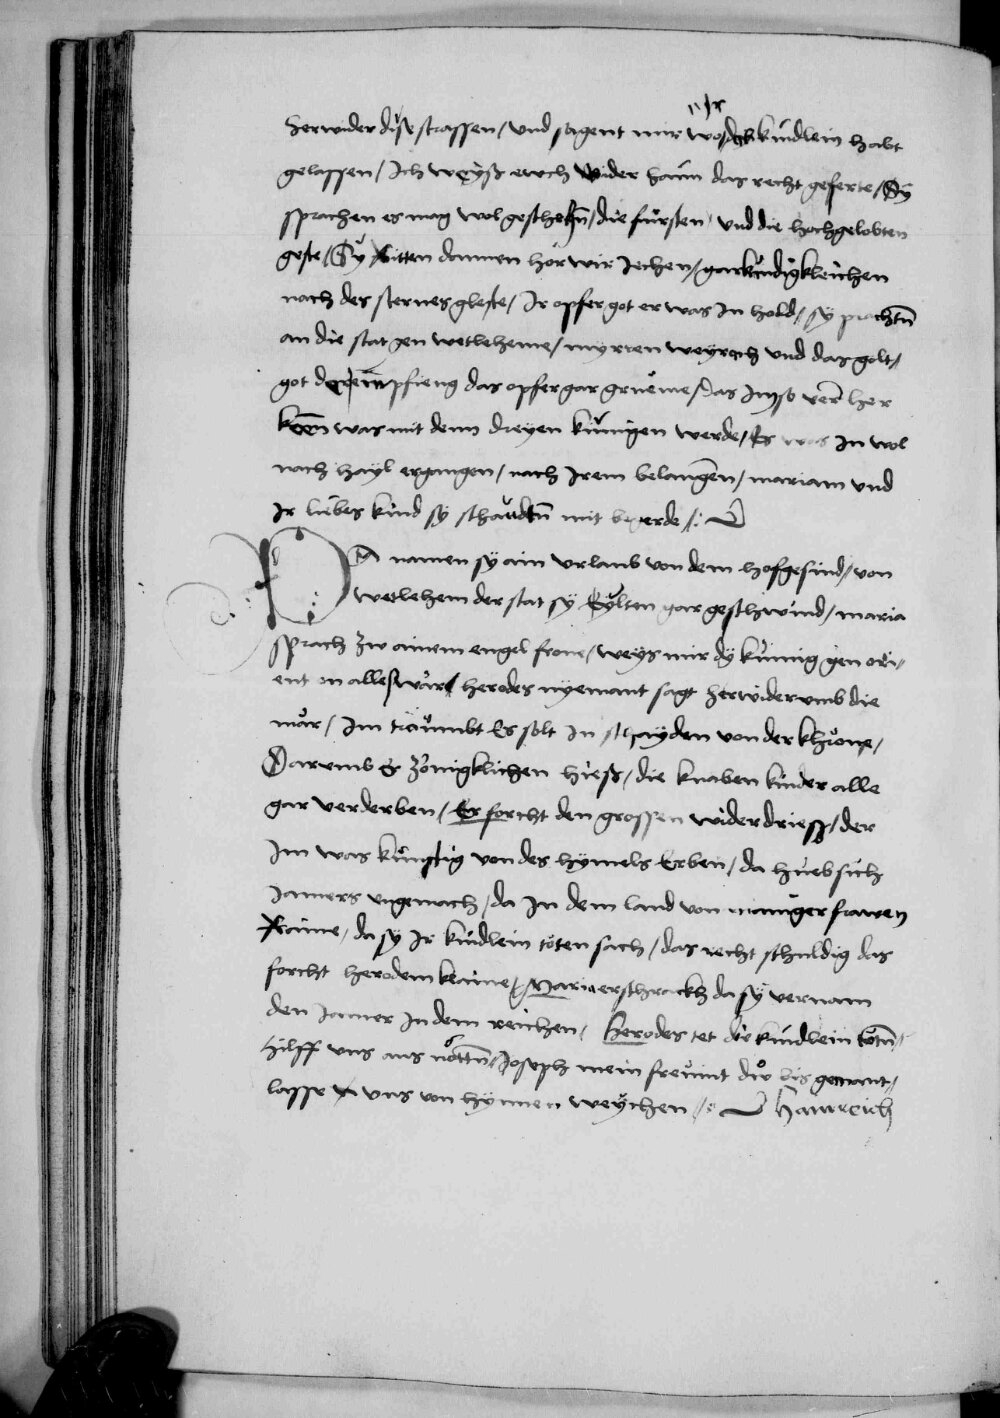 herwider dise strassen / vnd sagent mir wo Ir das kindlein habt
gelassen / Ich weyss ewch wider haim das recht geferte / Sy
sprachen es mag wol geschehn / die fürsten vnd die hochgelobten
geste / Sy Ritten dannen hör wir Jechen / gar kündigkleichen
nach des sternes gleste / Ir opfer got er was In hold / sy prachtn
an die stat gen wetleheme / myrren weyrach vnd das golt /
got der empfieng das opfer gar grueme / das Im so verr her
komen was mit denn dreyen künigen werde / Es was In wol
nach hayl ergangen / nach Irem belangen / mariam vnd
Ir liebes kind sy schaudtn mit begerde /
DA namen sy ain vrlaub von dem hofgesind / von
wetlehem der stat sy Eylten gar geschwind / maria
sprach zw ainem engel frone / weys mir dy künig gen ori /
ent on alles wär / herodes nyemant sagt herwiderumb die
mär / Im träumbt Es solt In schayden von der khrone /
Darumb Er zornigklichen hiess / die knaben kinder alle
gar verderben / Er forcht den grossen widerdriess / der
Im was künftig von des hymels Erben / da hueb sich
Jamers vngemach / da In dem land von maniger frawen
raine / da sy Ir kindlein töten sach / das recht schuldig das
forcht herodem kaine / Maria erschrackh da sy vernam
den Jamer In dem reichen / Herodes tet die kindlein tötn /
hilff vns aus nöttn / Joseph mein freunt du bis gemant /
lasse vns von hynnen weychen / Hainreich